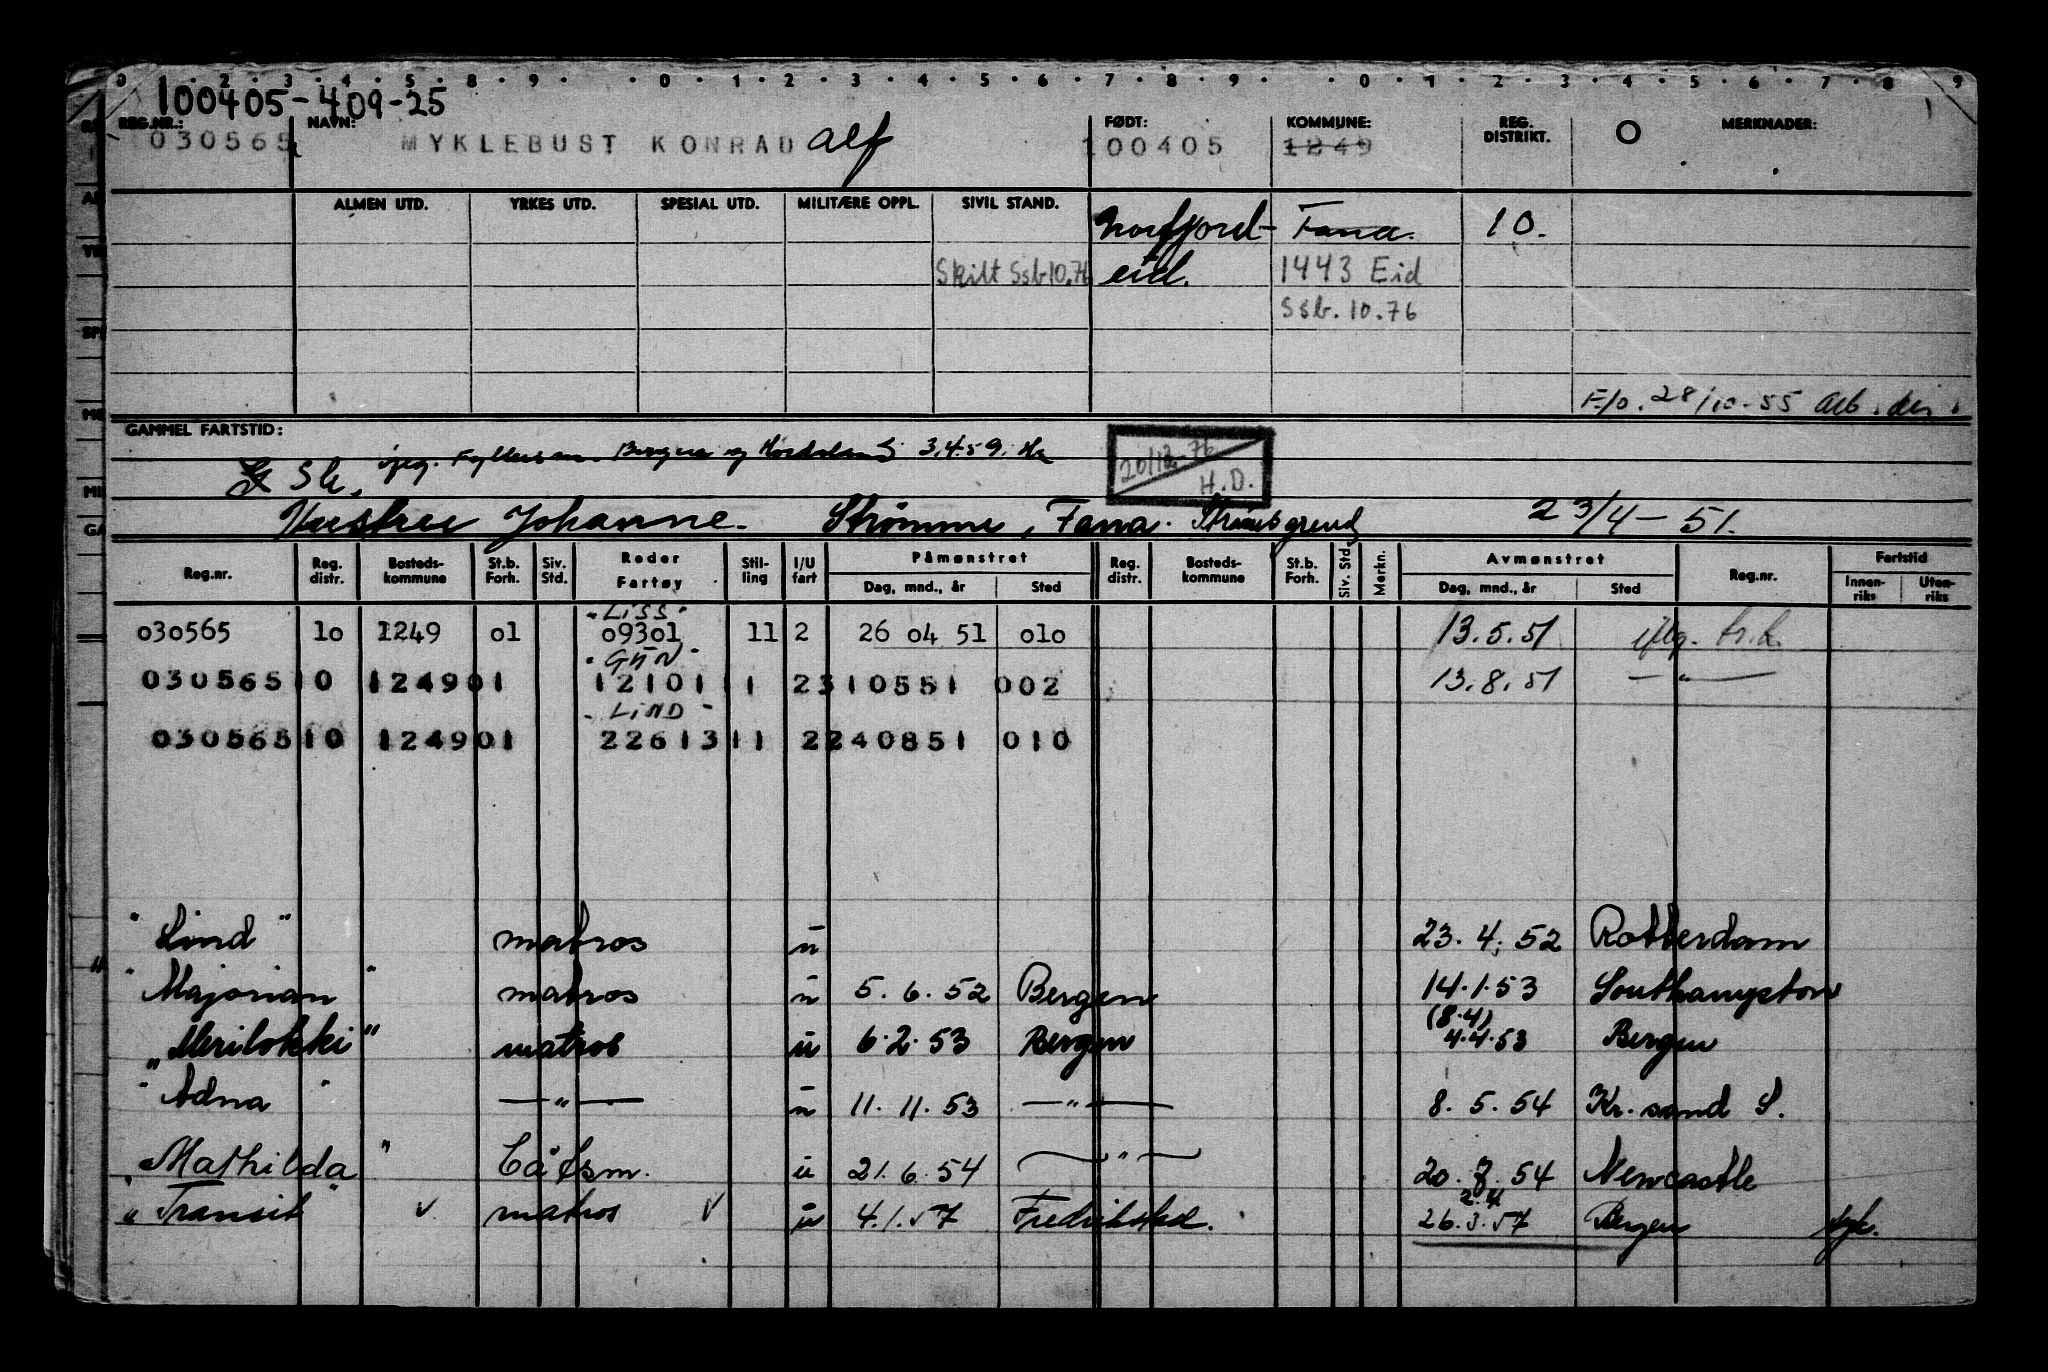 0 2 3 4 5 8 9 0 1 2 3 4 5 6 7 8 9 0 1 2 3 4 5 6 7 8 9
100405-409-25
REG.NR.: NAVN: FØDT: KOMMUNE: REG. DISTRIKT. O MERKNADER:
030565 MYKLEBUST KONRAD Alf 100405 1249
ALMEN UTD. YRKES UTD. SPESIAL UTD. MILITÆRE OPPL. SIVIL STAND. Nordfjord- Fana. 10.
Skilt Ssb 10.76 eid. 1443 Eid
Ssb. 10.76
F/o. 28/10-55 Arb. dir.
GAMMEL FARTSTID:
iflg. Fylkesm. Bergen og Hordaland 3.4.59. 20/12-76
H.D.
Hustru Johanne. Strømme, Fana. 23/4-51.
Reg.nr. Reg. distr. Bosteds- kommune St.b. Forh. Siv. Std. Reder Fartøy Stil- ling I/U fart Påmønstret Dag, mnd., år Sted Reg. distr. Bosteds- kommune St.b. Forh. Siv. Std Merkn. Avmønstret Dag, mnd., år Sted Reg.nr. Fartstid Innen- riks Uten- riks
-LISS-
030565 10 1249 01 09301 11 2 26 04 51 010 13.5.51 iflg.
-GUN-
030565 10 1249 01 12101 11 2 310551 002 13.8.51 —"—
-LIND-
030565 10 1249 01 22613 11 2 240851 010
"Lind" matros u 23.4.52 Rotterdam
"Majorian" matros u 5.6.52 Bergen 14.1.53 Southampton
"Merilokki" matros u 6.2.53 Bergen (8.4) 4.4.53 Bergen
"Adna" —"— u 11.11.53 —"— 8.5.54 Kr.sand S.
Mathilda" båtsm. u 21.6.54 —"— 20.7.54 Newcastle
"Transit" v matros v u 4.1.57 Fredrikstad. 2.4 26.3.57 Bergen syk.